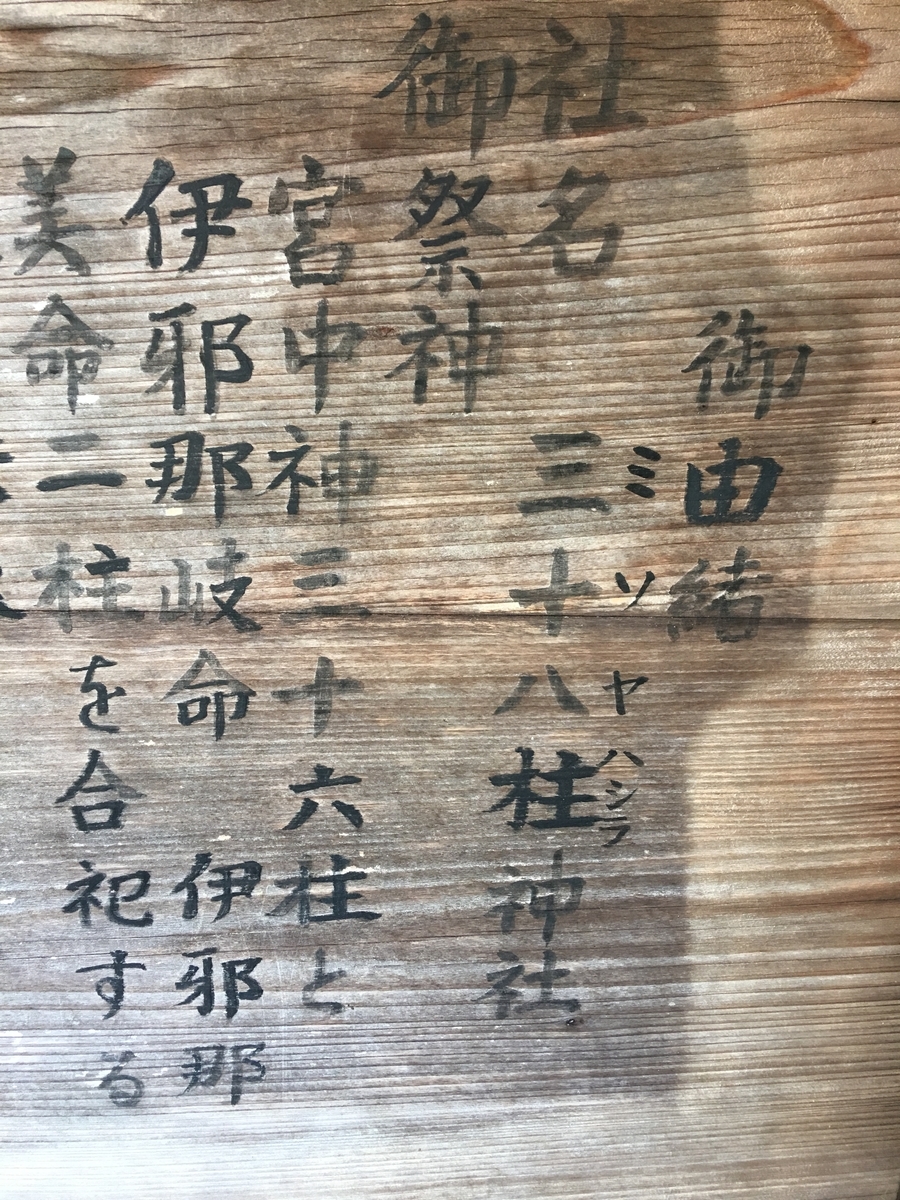 御由緒
社名 三十八柱神社
ミソヤハシラ
御祭神
宮中神三十六柱と
伊邪那岐命 伊邪那
美命二柱を合祀する